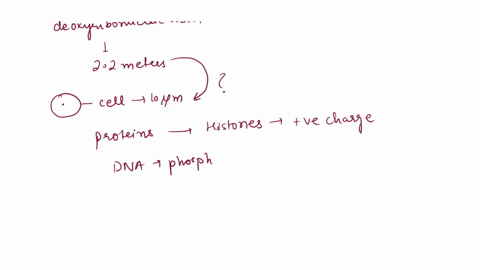 2.2 meters
?
cell → 10 μm
proteins → Histones → +ve charge
DNA → phosph